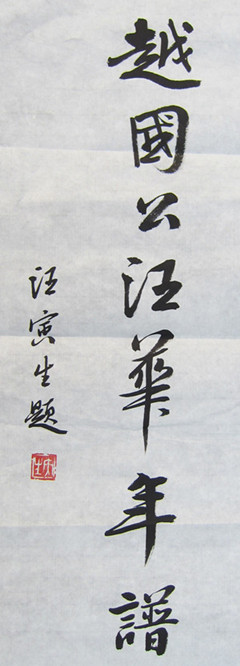 越國公汪華年譜
汪寅生題